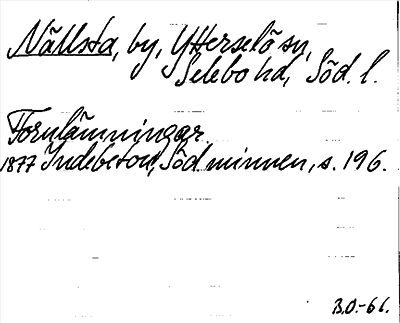 Nällsta, by, Ytterselö sn,
Selebo hd, Söd. l.
Fornlämningar.
1877 Indebetou, Söd minnen, s. 196.
B.O.-66.